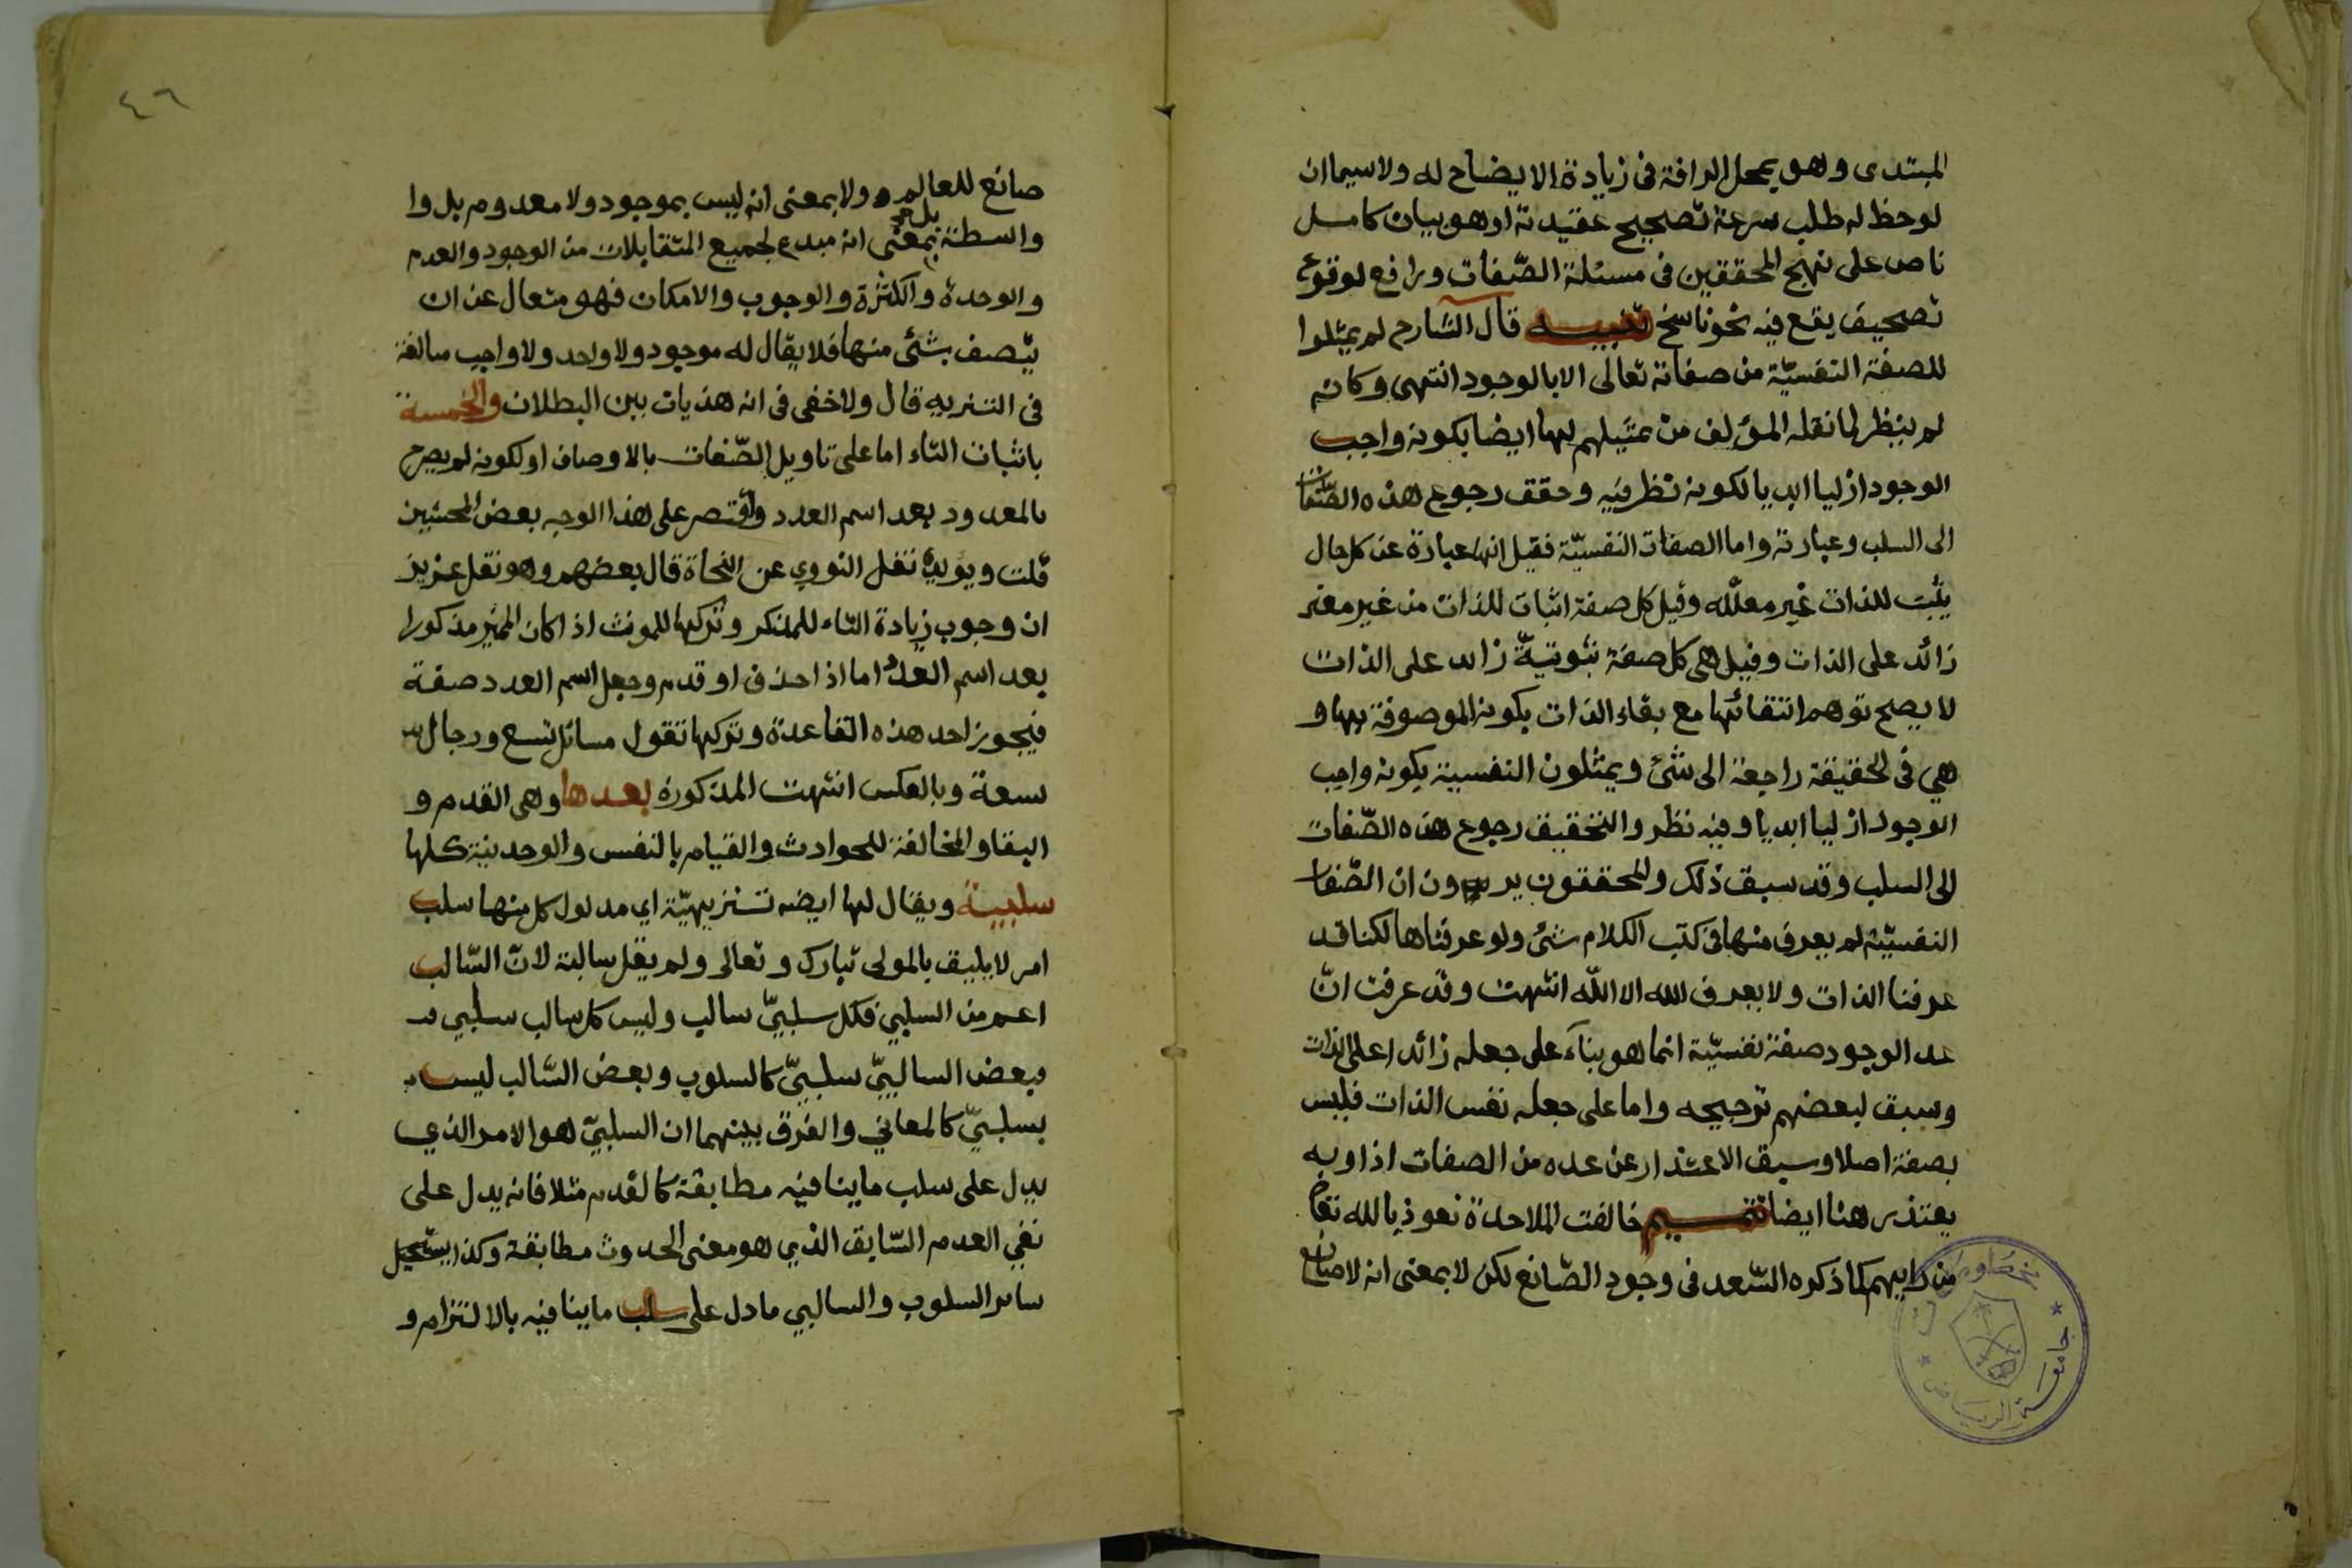 المبتدى وهو بمحل الرافة فى زيادة الايضاح له ولاسيما ان
لوحظ له طلب سرعة تصحيح عقيدته او هو بيان كامل
ناص على نهج المحققين فى مسئلة الصّفات ورافع لوقوع
تصحيف يقع فيه نحو ناسخ تنبيه قال الشارح لم يمثلوا
للصفة النفسيّة من صفاته تعالى الا بالوجود انتهى وكانه
لم ينظر لما نقله المؤلف من تمثيلهم لها ايضا بكونه واجب
الوجود ازليا ابديا لكونه نظر فيه وحقق رجوع هذه الصّفات
الى السلب وعبارته واما الصفات النفسيّة فقيل انها عبارة عن كل حال
يثبت للذات غير معلله وقيل كل صفة اثبات للذات من غير معنى
زائد على الذات وقيل هى كل صفة ثبوتيةّ زائد على الذات
لا يصح توهم انتفائها مع بقاء الذات بكونه الموصوفة بها و
هي فى الحقيقة راجعة الى شئ ويمثلون النفسية بكونه واجب
الوجود ازليا ابديا وفيه نظر والتحقيق رجوع هذه الصّفات
الى السلب وقد سبق ذلك والمحققون يرون ان الصّفات
النفسيّة لم يعرف منها فى كتب الكلام شئ ولو عرفناها لكنا قد
عرفنا الذات ولا يعرف الله الا اللّه انتهت وقد عرفت انّ
عد الوجود صفة نفسيّة انما هو بناء على جعله زائدا على الذات
وسبق لبعضهم ترجيحه واما على جعله نفس الذات فليس
بصفة اصلا وسبق الاعتذار عن عده من الصفات اذا وبه
يعتذر هنا ايضا تتميم خالفت الملاحدة نعوذ بالله تعالى
من رايهم كما ذكره السّعد فى وجود الصّانع لكن لا بمعنى انه لا صانع
جامعة الرياض
٤٦
صانع للعالم ولا بمعنى انه ليس بموجود ولا معدوم بل وا
واسطة بل هو بمعنى انه مبدع لجميع المتقابلات من الوجود والعدم
والوحدة والكثرة والوجوب والامكان فهو متعال عن ان
يتّصف بشئ منها فلا يقال له موجود ولا واحد ولا واجب مبالغة
فى التنزيه قال ولا خفى فى انه هذيات بين البطلان والخمسة
باثبات التاء اما على تاويل الصّفات بالاوصاف او لكونه لم يصرح
بالمعدود بعد اسم العدد واقتصر على هذا الوجه بعض المحشين
قلت ويؤيده نقل النووي عن النحاة قال بعضهم وهو نقل عزيز
ان وجوب زيادة التاء للمذكر وتركها للمونث اذا كان المميز مذكورا
بعد اسم العدد اما اذا حذف او قدم وجعل اسم العدد صفة
فيجوز احد هذه القاعدة وتركها تقول مسائل تسع ورجال
تسعة وبالعكس انتهت المذكورة بعدها وهى القدم و
البقا والمخالفة للحوادث والقيام بالنفس والوحدنية كلها
سلبية ويقال لها ايضه تنزيهيّة اي مدلول كل منها سلب
امر لا يليق بالمولى تبارك وتعالى ولم يقل سالبة لانّ السّالب
اعم من السلبي فكل سلبيّ سالب وليس كل سالب سلبي
فبعض السالبيّ سلبيّ كالسلوب وبعض السّالب ليس
بسلبيّ كالمعاني والفرق بينهما ان السلبيّ هو الامر الذي
يدل على سلب ما ينافيه مطابقة كالقدم مثلا فانه يدل على
نفي العدم السّابق الذي هو معنى الحدوث مطابقة وكذا يستحيل
سائر السلوب والسالبي ما دل على سلب ما ينافيه بالالتزام و